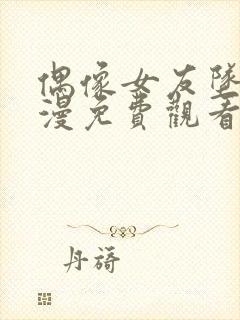 偶像女友墜
漫免費觀看
丹旖